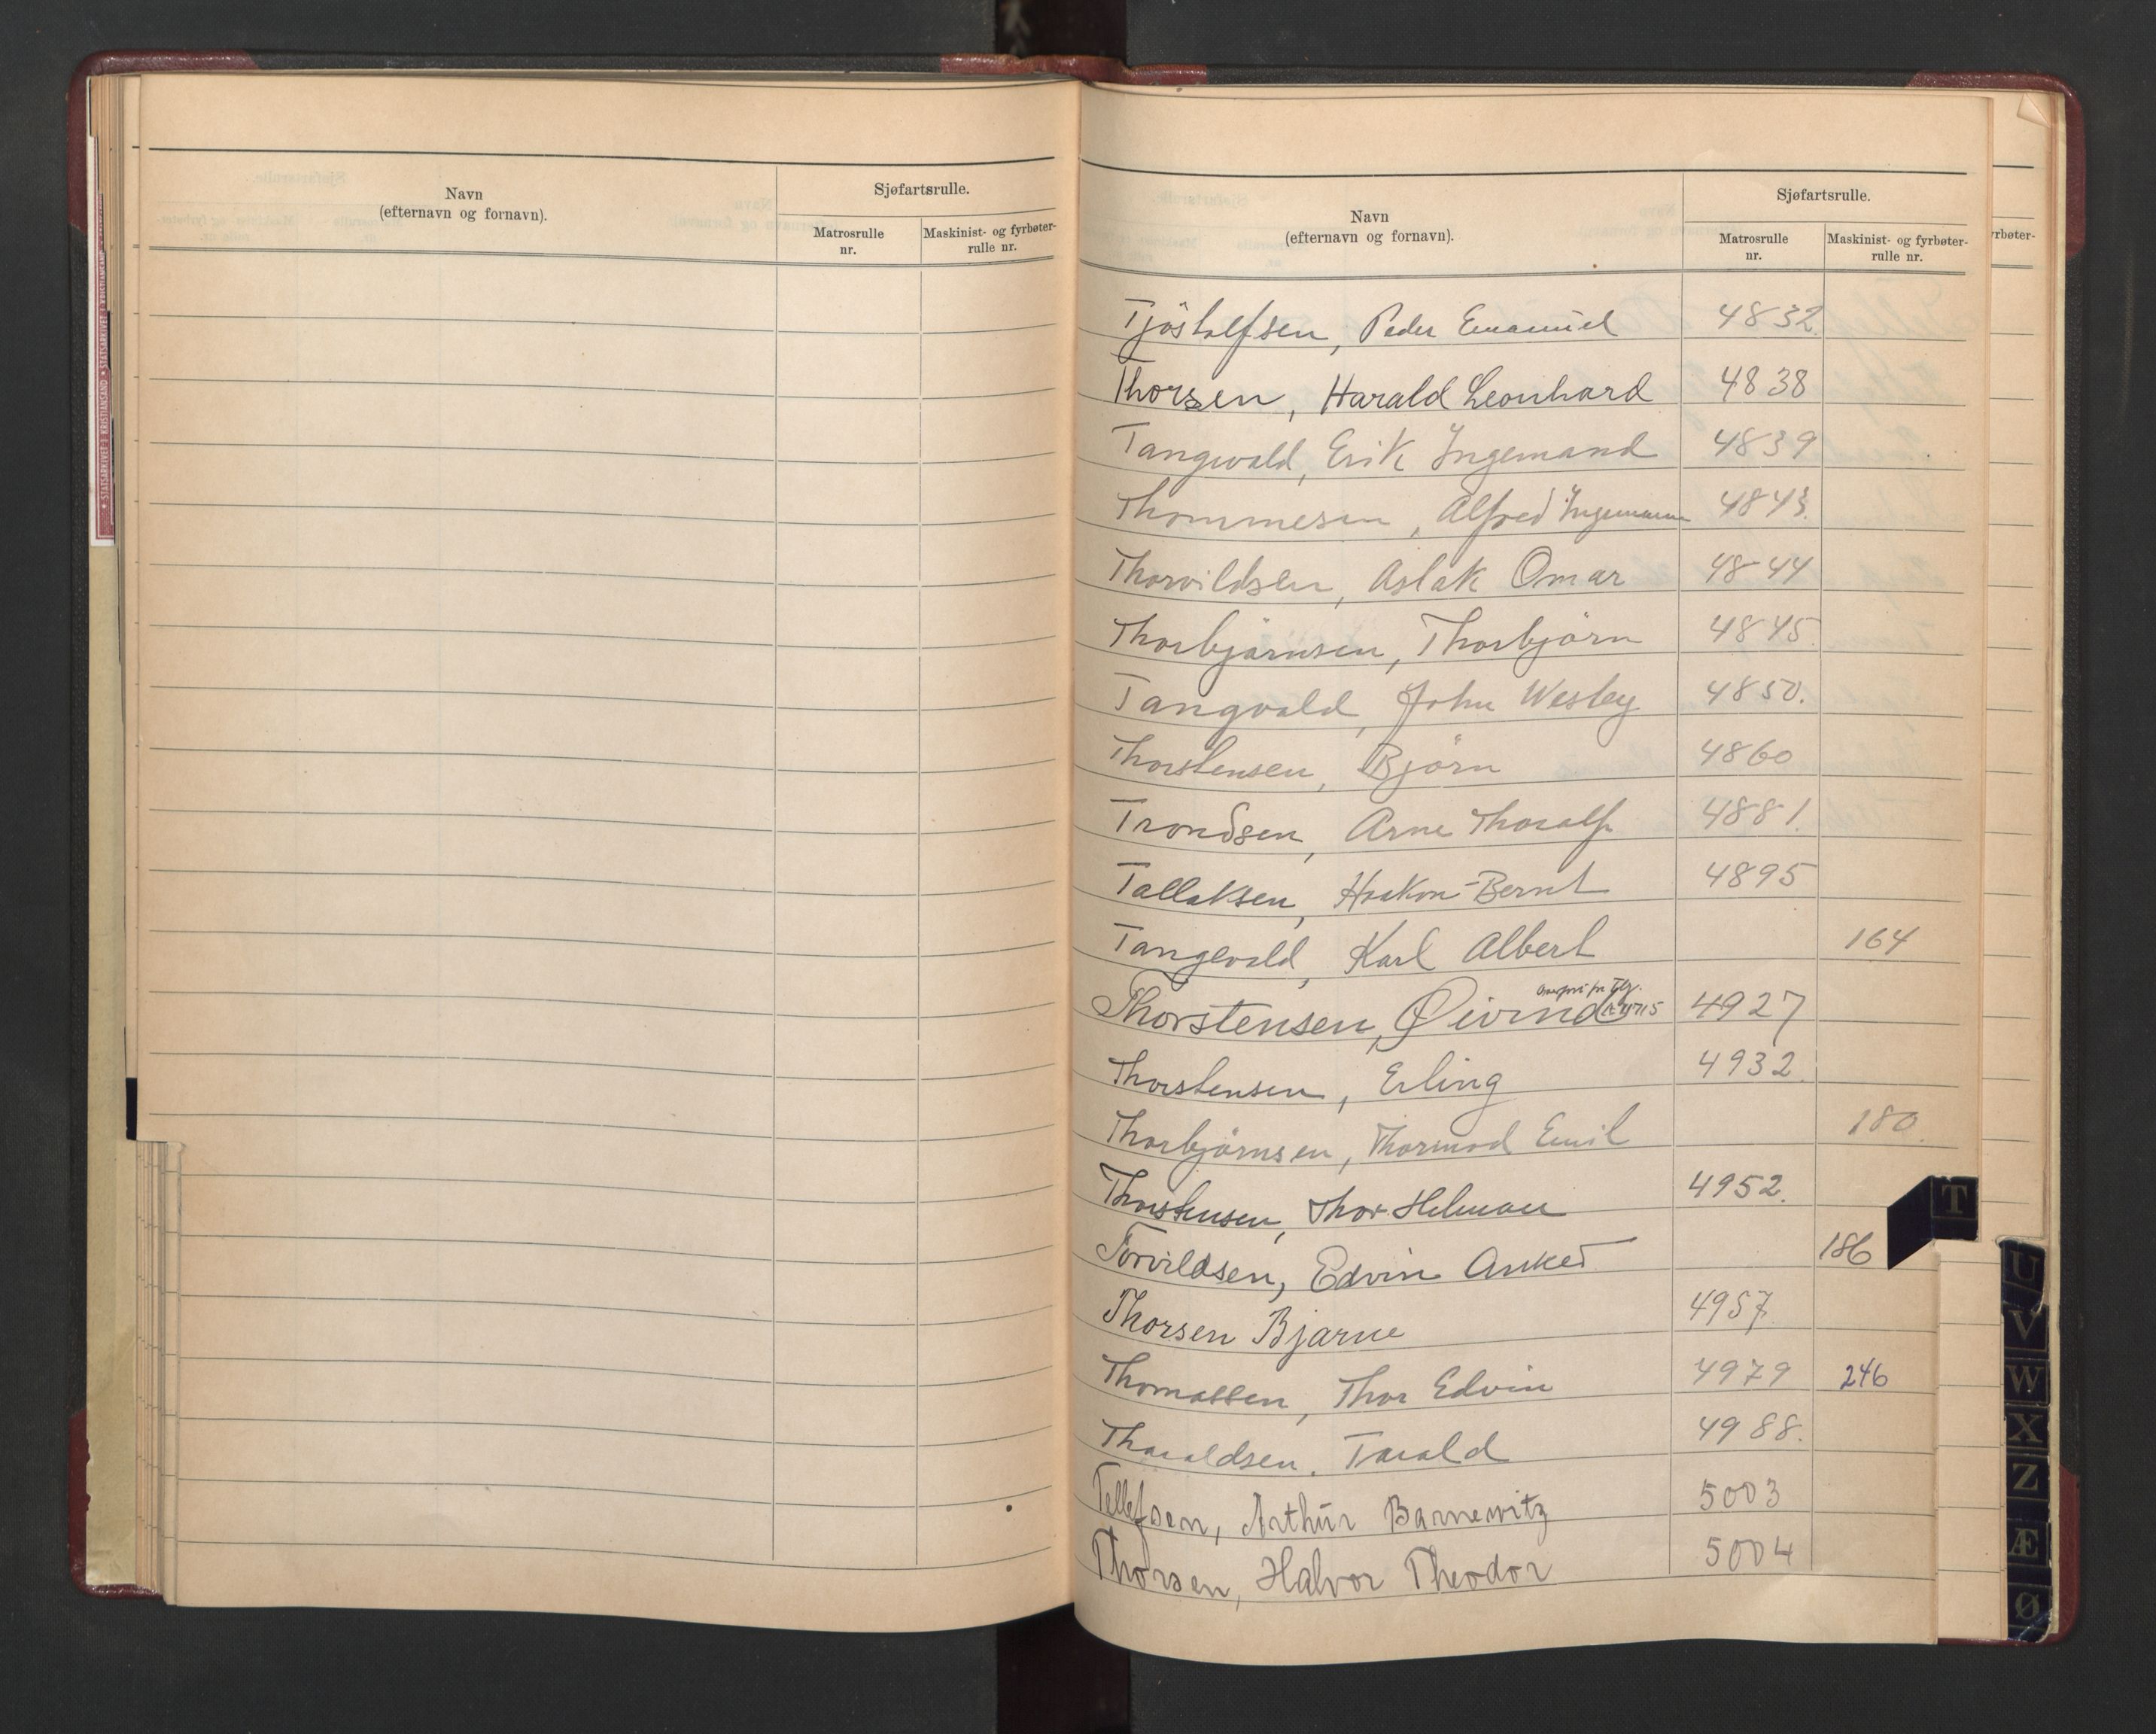 Navn
(efternavn og fornavn).
Sjøfartsrulle.
Matrosrulle
nr.
Maskinist- og fyrbøter-
rulle nr.
Navn
(efternavn og fornavn).
Sjøfartsrulle.
Matrosrulle
nr.
Maskinist- og fyrbøter-
rulle nr.
yrbøter-
Tjöstolfsen, Peder Emanuel 4832.
Thorsen, Harald Leonhard 4838
Tangwald, Erik Ingemand 4839
Thommesen, Alfred Ingemann 4843.
Thorvildsen, Aslak Omar 4844
Thorbjörnsen, Thorbjörn 4845.
Tangvald, John Wesley 4850.
Thorstensen, Björn 4860
Trondsen, Arne Thoralf 4881.
Tallaksen, Haakon Bernt 4895
Tangevald, Karl Albert 164
Thorstensen, Øivind 4927
Thorstensen, Erling 4932.
Thorbjörnsen, Thormod Emil 180.
Thorstensen, Thor Helman 4952.
Torvildsen, Edvin Anked 186
Thorsen Bjarne 4957
Thomassen, Thor Edvin 4979 246
Tharaldsen. Tarald 4988.
Tellefsen, Arthur Barnewitz 5003
Thorsen, Halvor Theodor 5004
T
U
V
W
X
Z
Æ
Ø
STATSARKIVET I KRISTIANSAND • STATSARKIVET I KRISTIANSAND • STATSARKIVET